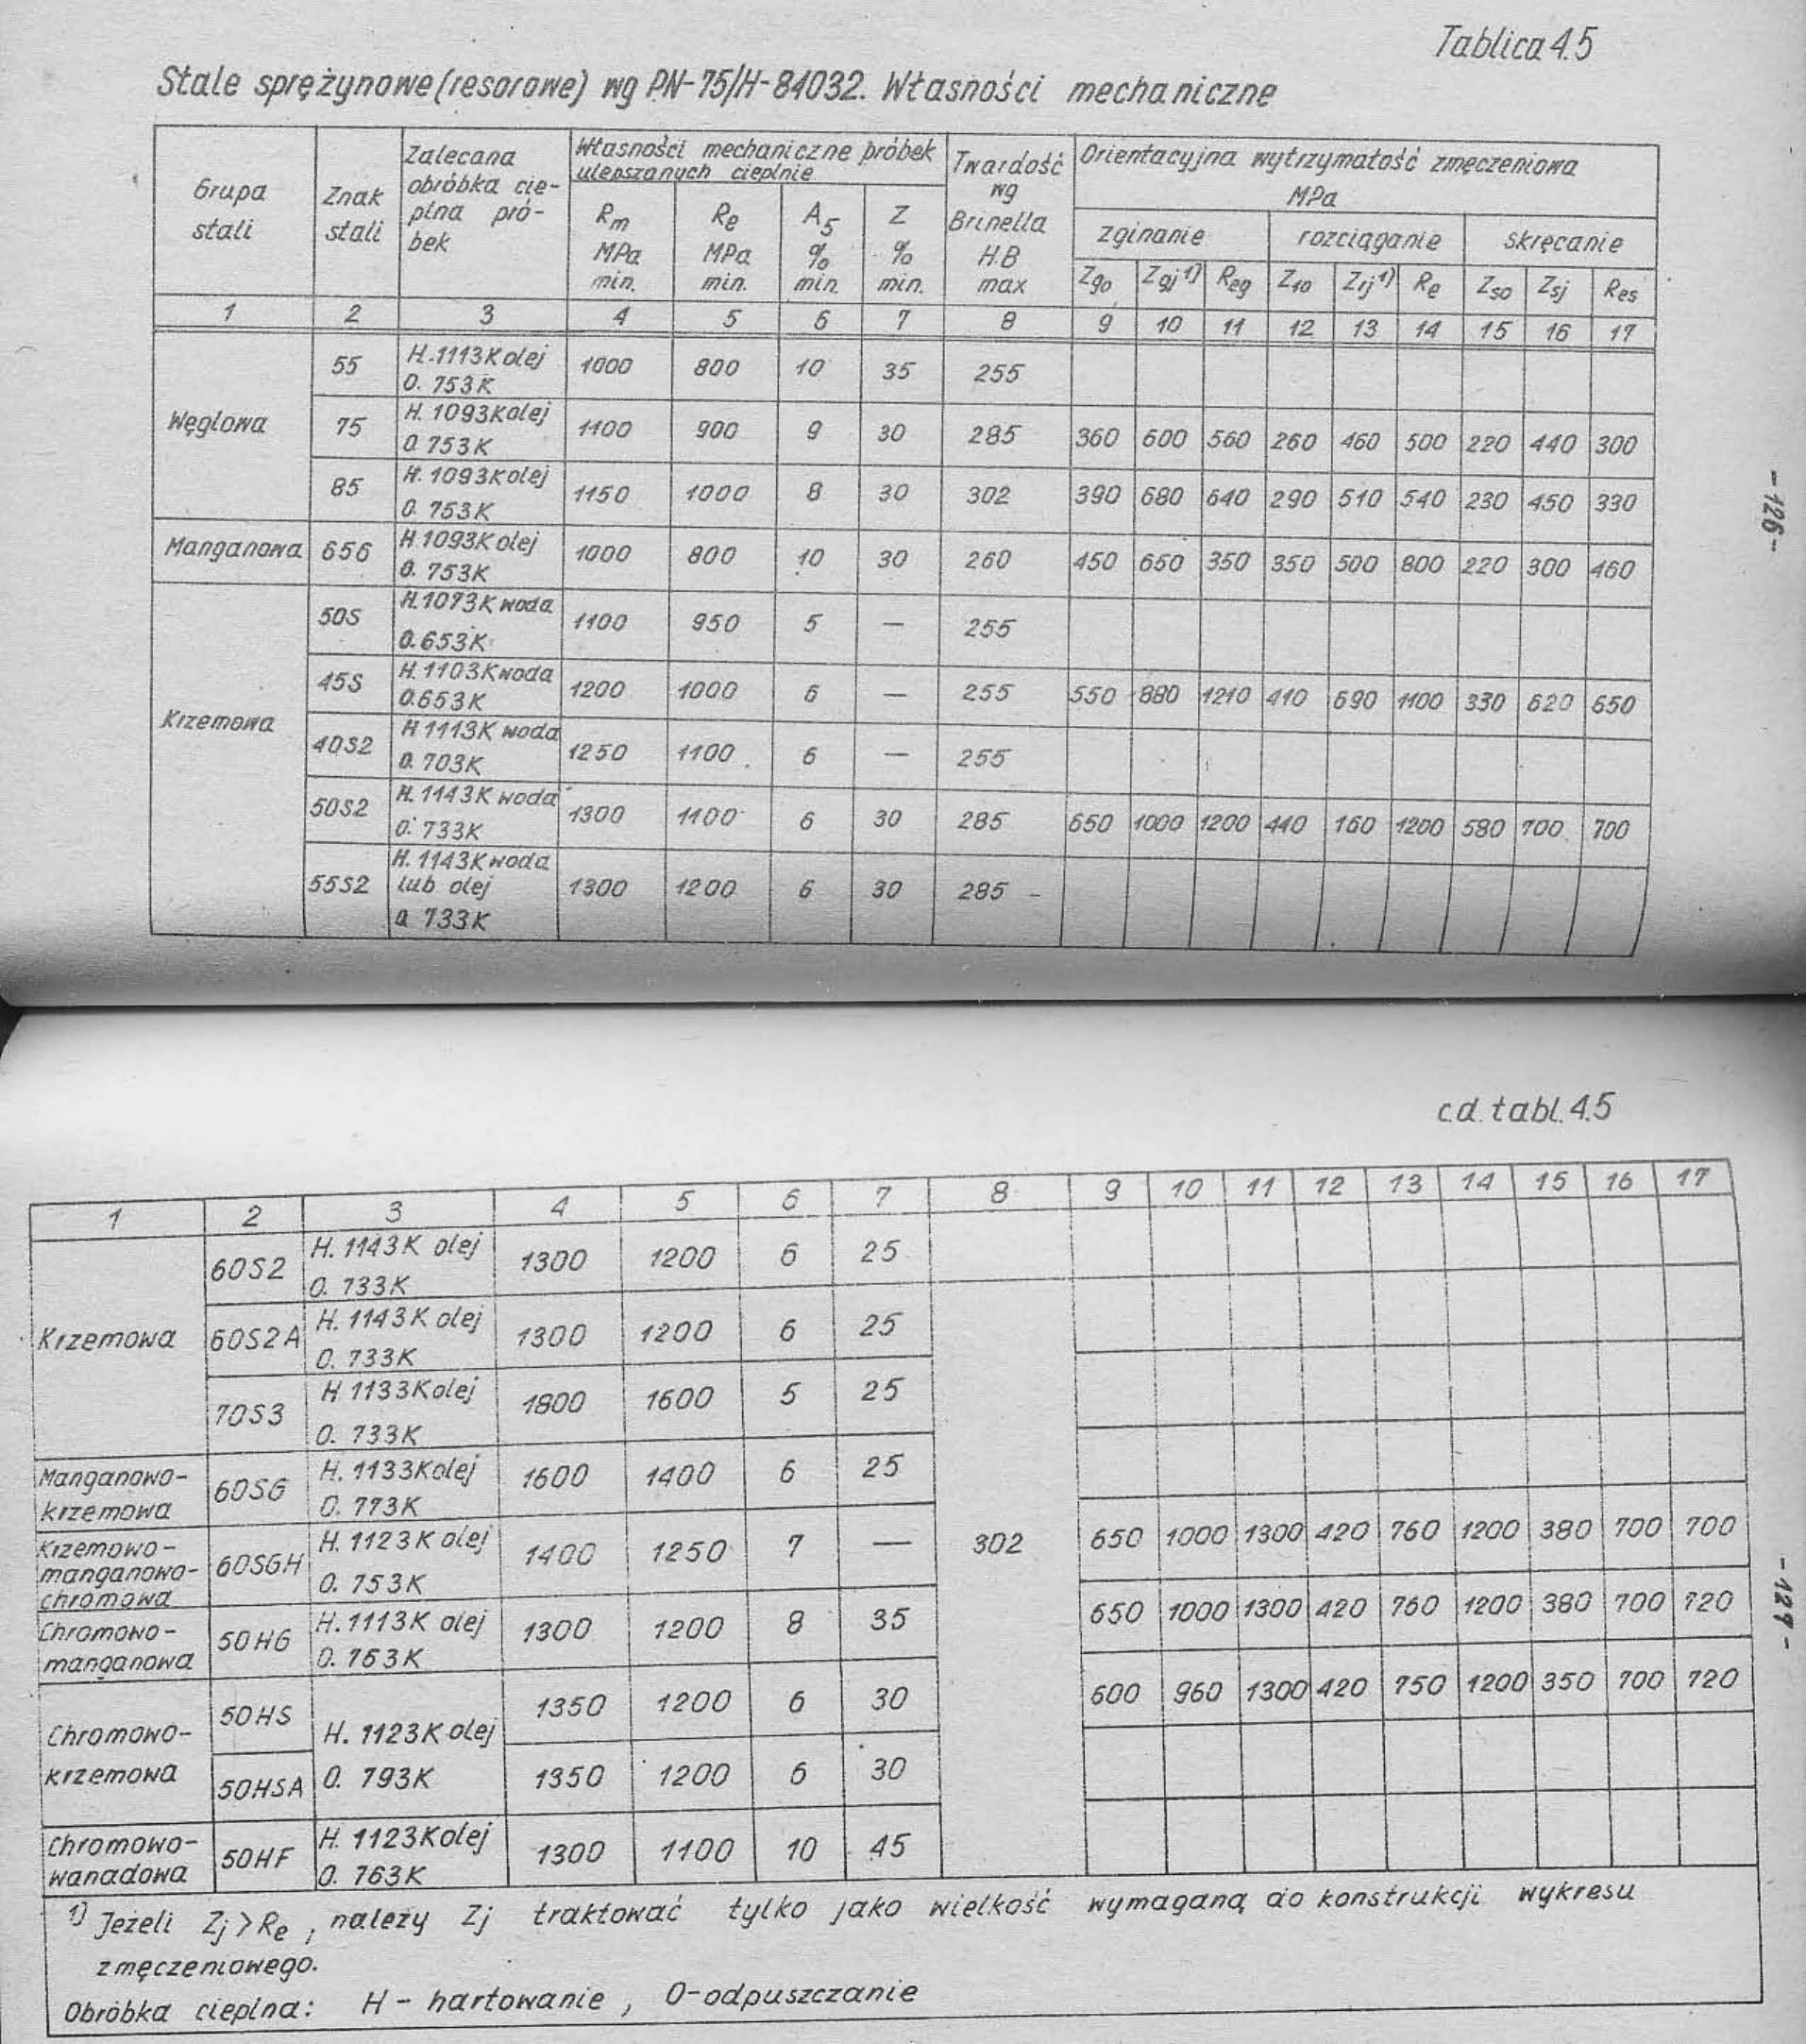 Tablica 4.5
Stale sprężynowe (resorowe) wg PN-75/H-84032. Własności mechaniczne
Grupa stali | Znak stali | Zalecana obróbka cieplna próbek | Własności mechaniczne próbek ulepszanych cieplnie | Twardość wg Brinella HB max | Orientacyjna wytrzymałość zmęczeniowa MPa
zginanie | rozciąganie | skręcanie
Rm MPa min. | Re MPa min. | A5 % min. | Z % min. | Zgo | Zgj 1) | Reg | Zro | Zrj 1) | Re | Zso | Zsj | Res
1 | 2 | 3 | 4 | 5 | 6 | 7 | 8 | 9 | 10 | 11 | 12 | 13 | 14 | 15 | 16 | 17
Węglowa | 55 | H. 1113K olej O. 753K | 1000 | 800 | 10 | 35 | 255
75 | H. 1093K olej O. 753K | 1100 | 900 | 9 | 30 | 285 | 360 | 600 | 560 | 260 | 460 | 500 | 220 | 440 | 300
85 | H. 1093K olej O. 753K | 1150 | 1000 | 8 | 30 | 302 | 390 | 680 | 640 | 290 | 510 | 540 | 230 | 450 | 330
Manganowa | 65G | H 1093K olej O. 753K | 1000 | 800 | 10 | 30 | 260 | 450 | 650 | 350 | 350 | 500 | 800 | 220 | 300 | 460
Krzemowa | 50S | H. 1073K woda O. 653K | 1100 | 950 | 5 | — | 255
45S | H. 1103K woda O. 653K | 1200 | 1000 | 6 | — | 255 | 550 | 880 | 1210 | 410 | 690 | 1100 | 330 | 620 | 650
40S2 | H 1113K woda O. 703K | 1250 | 1100 | 6 | — | 255
50S2 | H. 1143K woda O. 733K | 1300 | 1100 | 6 | 30 | 285 | 650 | 1000 | 1200 | 440 | 160 | 1200 | 580 | 700 | 700
55S2 | H. 1143K woda lub olej O 733K | 1300 | 1200 | 6 | 30 | 285
- 126 -
c.d. tabl. 4.5
1 | 2 | 3 | 4 | 5 | 6 | 7 | 8 | 9 | 10 | 11 | 12 | 13 | 14 | 15 | 16 | 17
Krzemowa | 60S2 | H. 1143K olej O. 733K | 1300 | 1200 | 6 | 25
60S2A | H. 1143K olej O. 733K | 1300 | 1200 | 6 | 25
70S3 | H 1133K olej O. 733K | 1800 | 1600 | 5 | 25
Manganowo-krzemowa | 60SG | H. 1133K olej O. 773K | 1600 | 1400 | 6 | 25
Krzemowo-manganowo-chromowa | 60SGH | H. 1123K olej O. 753K | 1400 | 1250 | 7 | — | 302 | 650 | 1000 | 1300 | 420 | 760 | 1200 | 380 | 700 | 700
Chromowo-manganowa | 50HG | H. 1113K olej O. 753K | 1300 | 1200 | 8 | 35 | 650 | 1000 | 1300 | 420 | 760 | 1200 | 380 | 700 | 720
Chromowo-krzemowa | 50HS | H. 1123K olej O. 793K | 1350 | 1200 | 6 | 30 | 600 | 960 | 1300 | 420 | 750 | 1200 | 350 | 700 | 720
50HSA | 1350 | 1200 | 6 | 30
Chromowo-wanadowa | 50HF | H. 1123K olej O. 763K | 1300 | 1100 | 10 | 45
1) Jeżeli Zj > Re, należy Zj traktować tylko jako wielkość wymaganą do konstrukcji wykresu
zmęczeniowego.
Obróbka cieplna: H - hartowanie, O - odpuszczanie
- 127 -